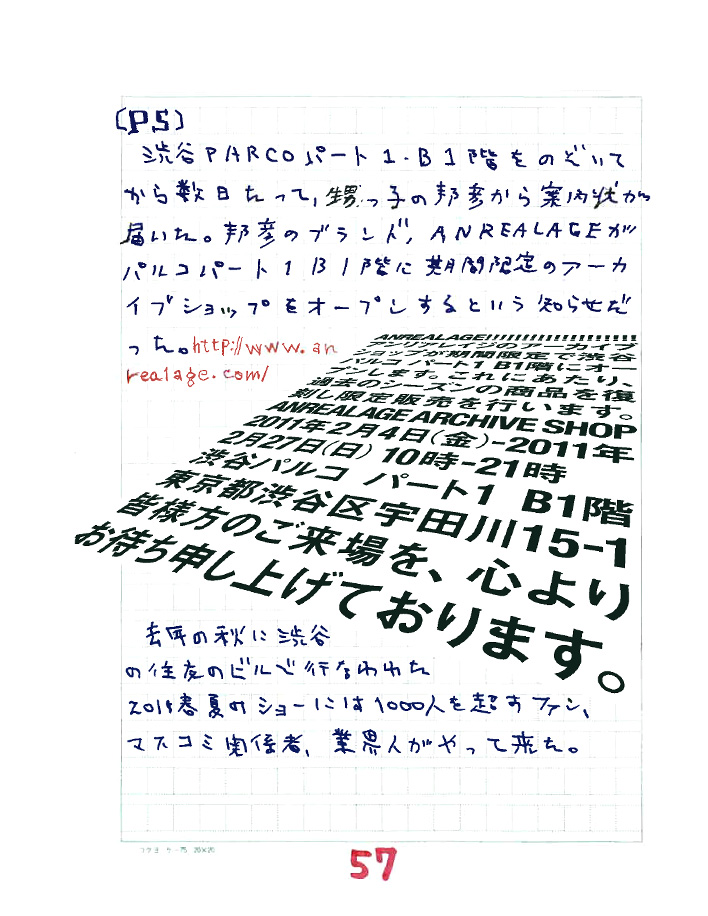 〔PS〕
渋谷PARCOパート1・B1階をのぞいて
から数日たって、甥っ子の邦彦から案内状が
届いた。邦彦のブランド、ANREALAGEが
パルコパート1 B1階に期間限定のアーカ
イブショップをオープンするという知らせだ
った。http://www.an
realage.com/
ANREALAGE!!!!!!!!!!!!!!!!!!!!!!!!
アンリアレイジのアーカイブ
ショップが期間限定で渋谷
パルコ パート1 B1階にオー
プンします。これにあたり、
過去のシーズンの商品を復
刻し限定販売を行います。
ANREALAGE ARCHIVE SHOP
2011年2月4日(金)-2011年
2月27日(日) 10時-21時
渋谷パルコ パート1 B1階
東京都渋谷区宇田川15-1
皆様方のご来場を、心より
お待ち申し上げております。
去年の秋に渋谷
のビルで行なわれた
春夏のショーには1000人を超すファン、
マスコミ関係者、業界人がやって来た。
20×20
57